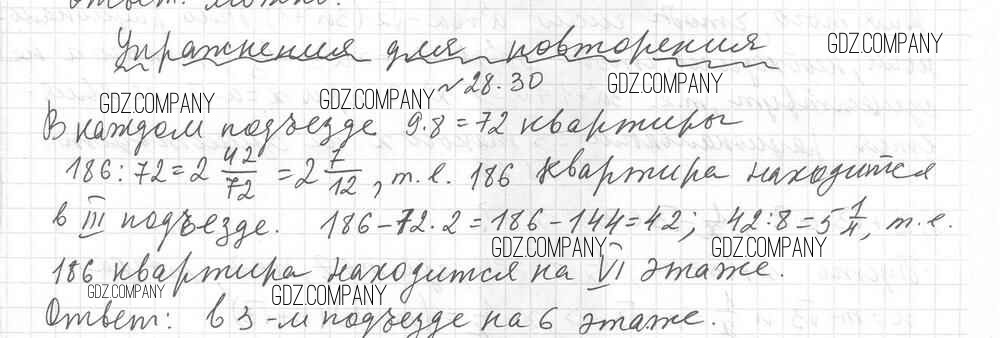 Ответ: можно.
Упражнения для повторения
GDZ.COMPANY
№28.30
GDZ.COMPANY
GDZ.COMPANY
GDZ.COMPANY
В каждом подъезде 9·8=72 квартиры
186:72=2 42/72 =2 7/12, т.е. 186 квартира находится
в III подъезде. 186-72·2=186-144=42; 42:8=5 1/4, т.е.
GDZ.COMPANY GDZ.COMPANY
186 квартира находится на VI этаже.
GDZ.COMPANY GDZ.COMPANY
Ответ: в 3-м подъезде на 6 этаже.